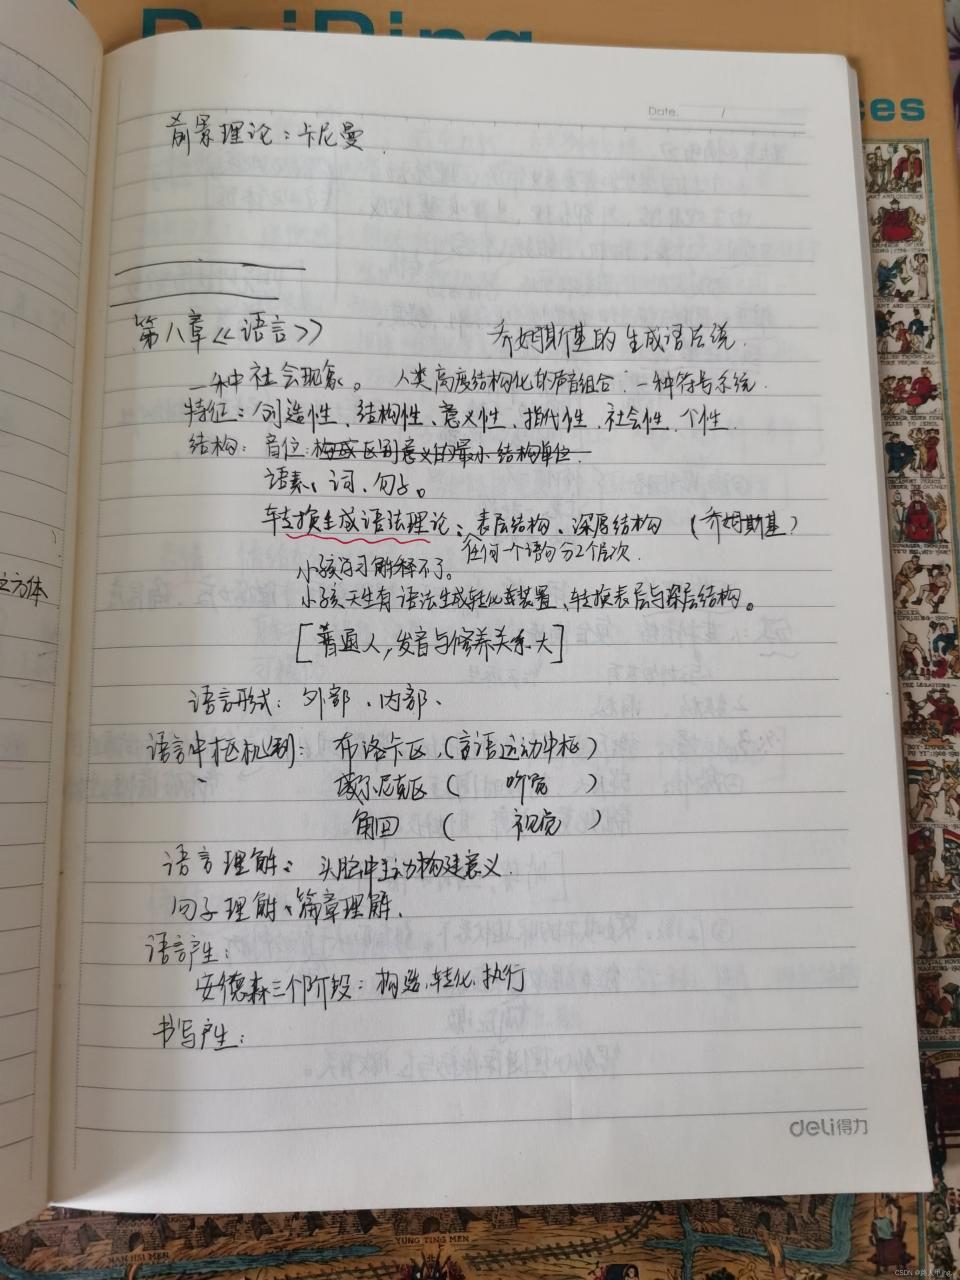 BeiPing
Date. /
ces
前景理论：卡尼曼.
第八章《语言》 乔姆斯基的生成语言系统.
一种社会现象。人类高度结构化的声音组合，一种符号系统.
特征：创造性、结构性、意义性、指代性、社会性、个性
结构：音位：构成区别意义的最小结构单位.
语素、词、句子。
转换生成语法理论：表层结构、深层结构 (乔姆斯基)
任何一个语句分2个层次.
小孩学习解释不了。
小孩天生有语法生成转化装置、转换表层与深层结构。
[普通人,发音与修养关系大]
语言形式：外部、内部、
立方体
语言中枢机制：布洛卡区、(言语运动中枢)
威尔尼克区 ( 听觉 )
角回 ( 视觉 )
语言理解：头脑中主动构建意义.
句子理解、篇章理解.
语言产生：
安德森三个阶段：构造、转化、执行
书写产生：
deli得力
NAN HSI MEN
YUNG TING MEN